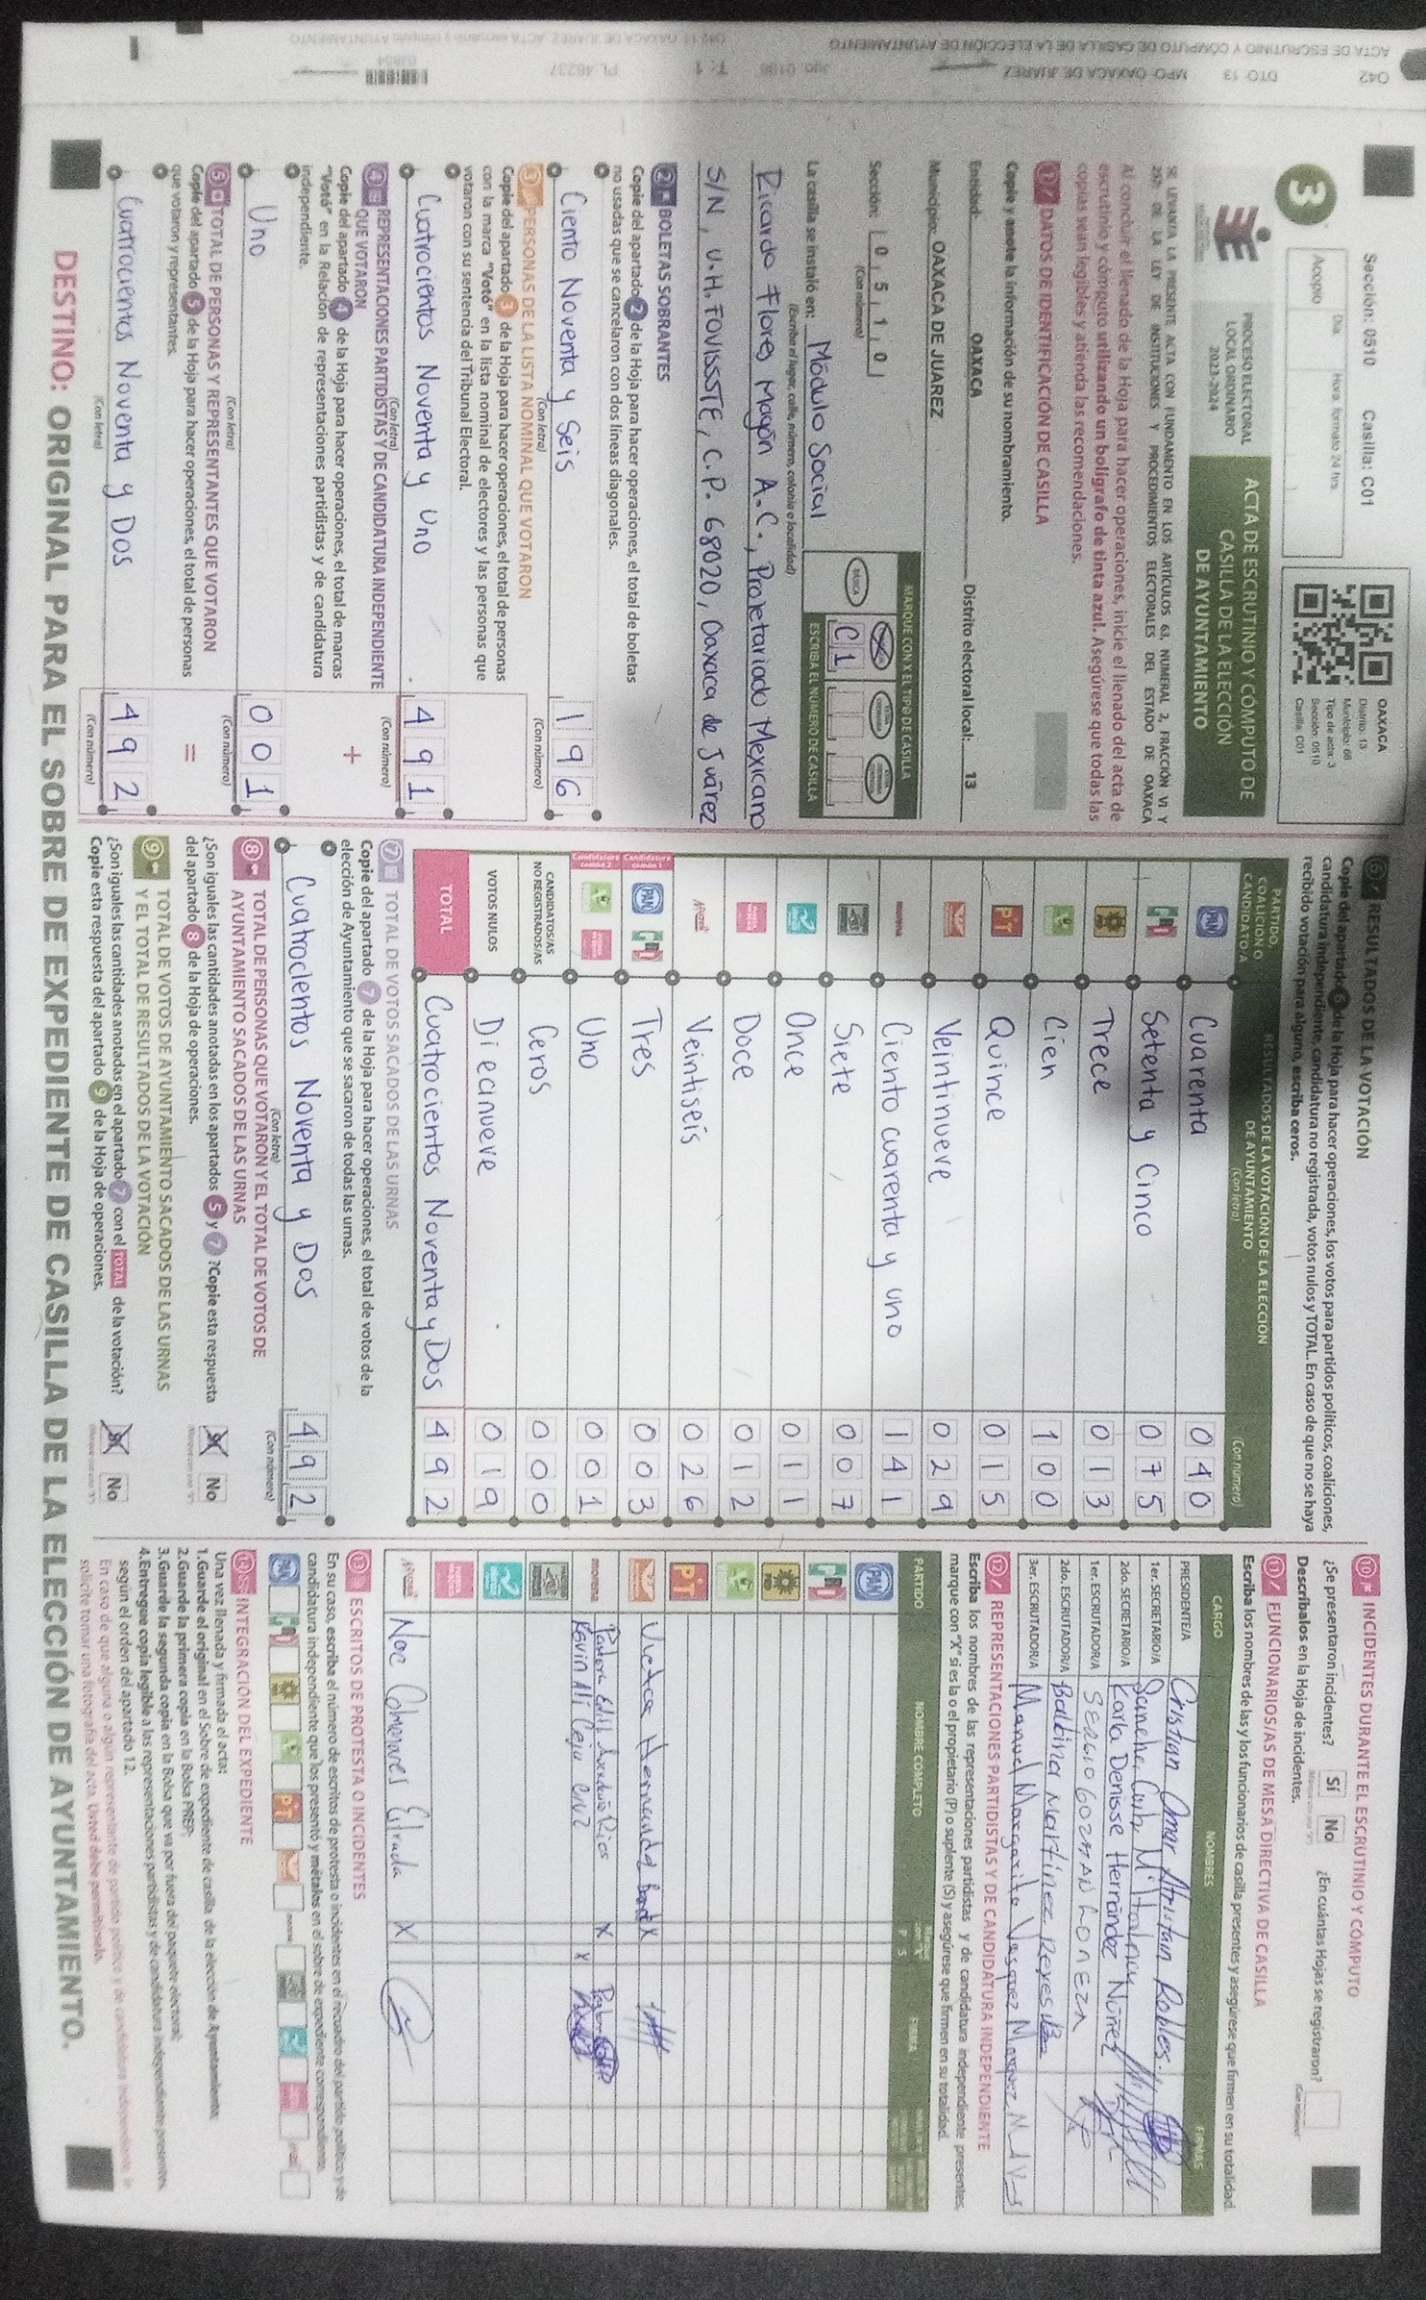 Sección: 0510 Casilla: C01
3
Día Hora, formato 24 hrs
Acopio
OAXACA
Distrito: 13
Municipio: 68
Tipo de acta: 3
Sección: 0510
Casilla: C01
PROCESO ELECTORAL
LOCAL ORDINARIO
2023-2024
ACTA DE ESCRUTINIO Y CÓMPUTO DE
CASILLA DE LA ELECCIÓN
DE AYUNTAMIENTO
SE LEVANTA LA PRESENTE ACTA CON FUNDAMENTO EN LOS ARTÍCULOS 63, NUMERAL 2, FRACCIÓN VI Y
250; DE LA LEY DE INSTITUCIONES Y PROCEDIMIENTOS ELECTORALES DEL ESTADO DE OAXACA
Al concluir el llenado de la Hoja para hacer operaciones, inicie el llenado del acta de
escrutinio y cómputo utilizando un bolígrafo de tinta azul. Asegúrese que todas las
copias sean legibles y atienda las recomendaciones.
1 DATOS DE IDENTIFICACIÓN DE CASILLA
Copie y anote la información de su nombramiento.
Entidad: OAXACA Distrito electoral local: 13
Municipio: OAXACA DE JUAREZ
Sección: 0 5 1 0
(Con número)
MARQUE CON X EL TIPO DE CASILLA
BÁSICA
C1
ESCRIBA EL NÚMERO DE CASILLA
La casilla se instaló en: Módulo Social
(Escriba el lugar, calle, número, colonia o localidad)
Ricardo Flores Magón A.C., Proletariado Mexicano
S/N, U.H. FOVISSSTE, C.P. 68020, Oaxaca de Juárez
2 BOLETAS SOBRANTES
Copie del apartado 2 de la Hoja para hacer operaciones, el total de boletas
no usadas que se cancelaron con dos líneas diagonales.
Ciento Noventa y Seis 196
(Con letra) (Con número)
3 PERSONAS DE LA LISTA NOMINAL QUE VOTARON
Copie del apartado 3 de la Hoja para hacer operaciones, el total de personas
con la marca "Votó" en la lista nominal de electores y las personas que
votaron con su sentencia del Tribunal Electoral.
Cuatrocientos Noventa y Uno 491
(Con letra) (Con número)
4 REPRESENTACIONES PARTIDISTAS Y DE CANDIDATURA INDEPENDIENTE
QUE VOTARON
Copie del apartado 4 de la Hoja para hacer operaciones, el total de marcas
"Votó" en la Relación de representaciones partidistas y de candidatura
independiente.
+
Uno 001
(Con letra) (Con número)
5 TOTAL DE PERSONAS Y REPRESENTANTES QUE VOTARON
Copie del apartado 5 de la Hoja para hacer operaciones, el total de personas
que votaron y representantes.
=
Cuatrocientos Noventa y Dos 492
(Con letra) (Con número)
6 RESULTADOS DE LA VOTACIÓN
Copie del apartado 6 de la Hoja para hacer operaciones, los votos para partidos políticos, coaliciones,
candidatura independiente, candidatura no registrada, votos nulos y TOTAL. En caso de que no se haya
recibido votación para alguno, escriba ceros.
PARTIDO, COALICIÓN O CANDIDATO/A RESULTADOS DE LA VOTACIÓN DE LA ELECCIÓN DE AYUNTAMIENTO (Con letra) (Con número)
PAN Cuarenta 040
PRI Setenta y Cinco 075
PRD Trece 013
Cien 100
PT Quince 015
Veintinueve 029
morena Ciento cuarenta y uno 141
Siete 007
Once 011
Doce 012
Veintiseis 026
Candidatura común 1 PAN PRI Tres 003
Candidatura común 2 Uno 001
CANDIDATOS/AS NO REGISTRADOS/AS Ceros 000
VOTOS NULOS Diecinueve 019
TOTAL Cuatrocientos Noventa y Dos 492
7 TOTAL DE VOTOS SACADOS DE LAS URNAS
Copie del apartado 7 de la Hoja para hacer operaciones, el total de votos de la
elección de Ayuntamiento que se sacaron de todas las urnas.
Cuatrocientos Noventa y Dos 492
(Con letra) (Con número)
8 TOTAL DE PERSONAS QUE VOTARON Y EL TOTAL DE VOTOS DE
AYUNTAMIENTO SACADOS DE LAS URNAS
¿Son iguales las cantidades anotadas en los apartados 5 y 7 ?Copie esta respuesta
del apartado 8 de la Hoja de operaciones.
Sí No
9 TOTAL DE VOTOS DE AYUNTAMIENTO SACADOS DE LAS URNAS
Y EL TOTAL DE RESULTADOS DE LA VOTACIÓN
¿Son iguales las cantidades anotadas en el apartado 7 con el TOTAL de la votación?
Copie esta respuesta del apartado 9 de la Hoja de operaciones.
Sí No
10 INCIDENTES DURANTE EL ESCRUTINIO Y CÓMPUTO
¿Se presentaron incidentes? Sí No ¿En cuántas Hojas se registraron?
Descríbalos en la Hoja de incidentes.
11 FUNCIONARIOS/AS DE MESA DIRECTIVA DE CASILLA
Escriba los nombres de las y los funcionarios de casilla presentes y asegúrese que firmen en su totalidad.
CARGO NOMBRES FIRMAS
PRESIDENTE/A Cristian Omar Robles
1er. SECRETARIO/A Sanchez
2do. SECRETARIO/A Karla Denisse Hernández Núñez
1er. ESCRUTADOR/A SERGIO GOZMAN
2do. ESCRUTADOR/A Balbina Martinez Reyes
3er. ESCRUTADOR/A Manuel Margarito Vasquez
12 REPRESENTACIONES PARTIDISTAS Y DE CANDIDATURA INDEPENDIENTE
Escriba los nombres de las representaciones partidistas y de candidatura independiente presentes,
marque con "X" si es la o el propietario (P) o suplente (S) y asegúrese que firmen en su totalidad.
PARTIDO NOMBRE COMPLETO P S FIRMA
PAN
PRI
PRD
PT
Victor Hernandez X
morena Rios X
Kevin Ali Cruz X
Noe Colmenares Estrada X
13 ESCRITOS DE PROTESTA O INCIDENTES
En su caso, escriba el número de escritos de protesta o incidentes en el recuadro del partido político y de
candidatura independiente que los presentó y métalos en el sobre de expediente correspondiente.
14 INTEGRACIÓN DEL EXPEDIENTE
Una vez llenada y firmada el acta:
1.Guarde el original en el Sobre de expediente de casilla de la elección de Ayuntamiento;
2.Guarde la primera copia en la Bolsa PREP;
3.Guarde la segunda copia en la Bolsa que va por fuera del paquete electoral;
4.Entregue copia legible a las representaciones partidistas y de candidatura independiente presentes,
según el orden del apartado 12.
En caso de que alguna o algún representante de partido político y de candidatura independiente, le
solicite tomar una fotografía del acta. Usted debe permitírselo.
DESTINO: ORIGINAL PARA EL SOBRE DE EXPEDIENTE DE CASILLA DE LA ELECCIÓN DE AYUNTAMIENTO.
042 DTO 13 MPO. OAXACA DE JUAREZ
ACTA DE ESCRUTINIO Y CÓMPUTO DE CASILLA DE LA ELECCIÓN DE AYUNTAMIENTO